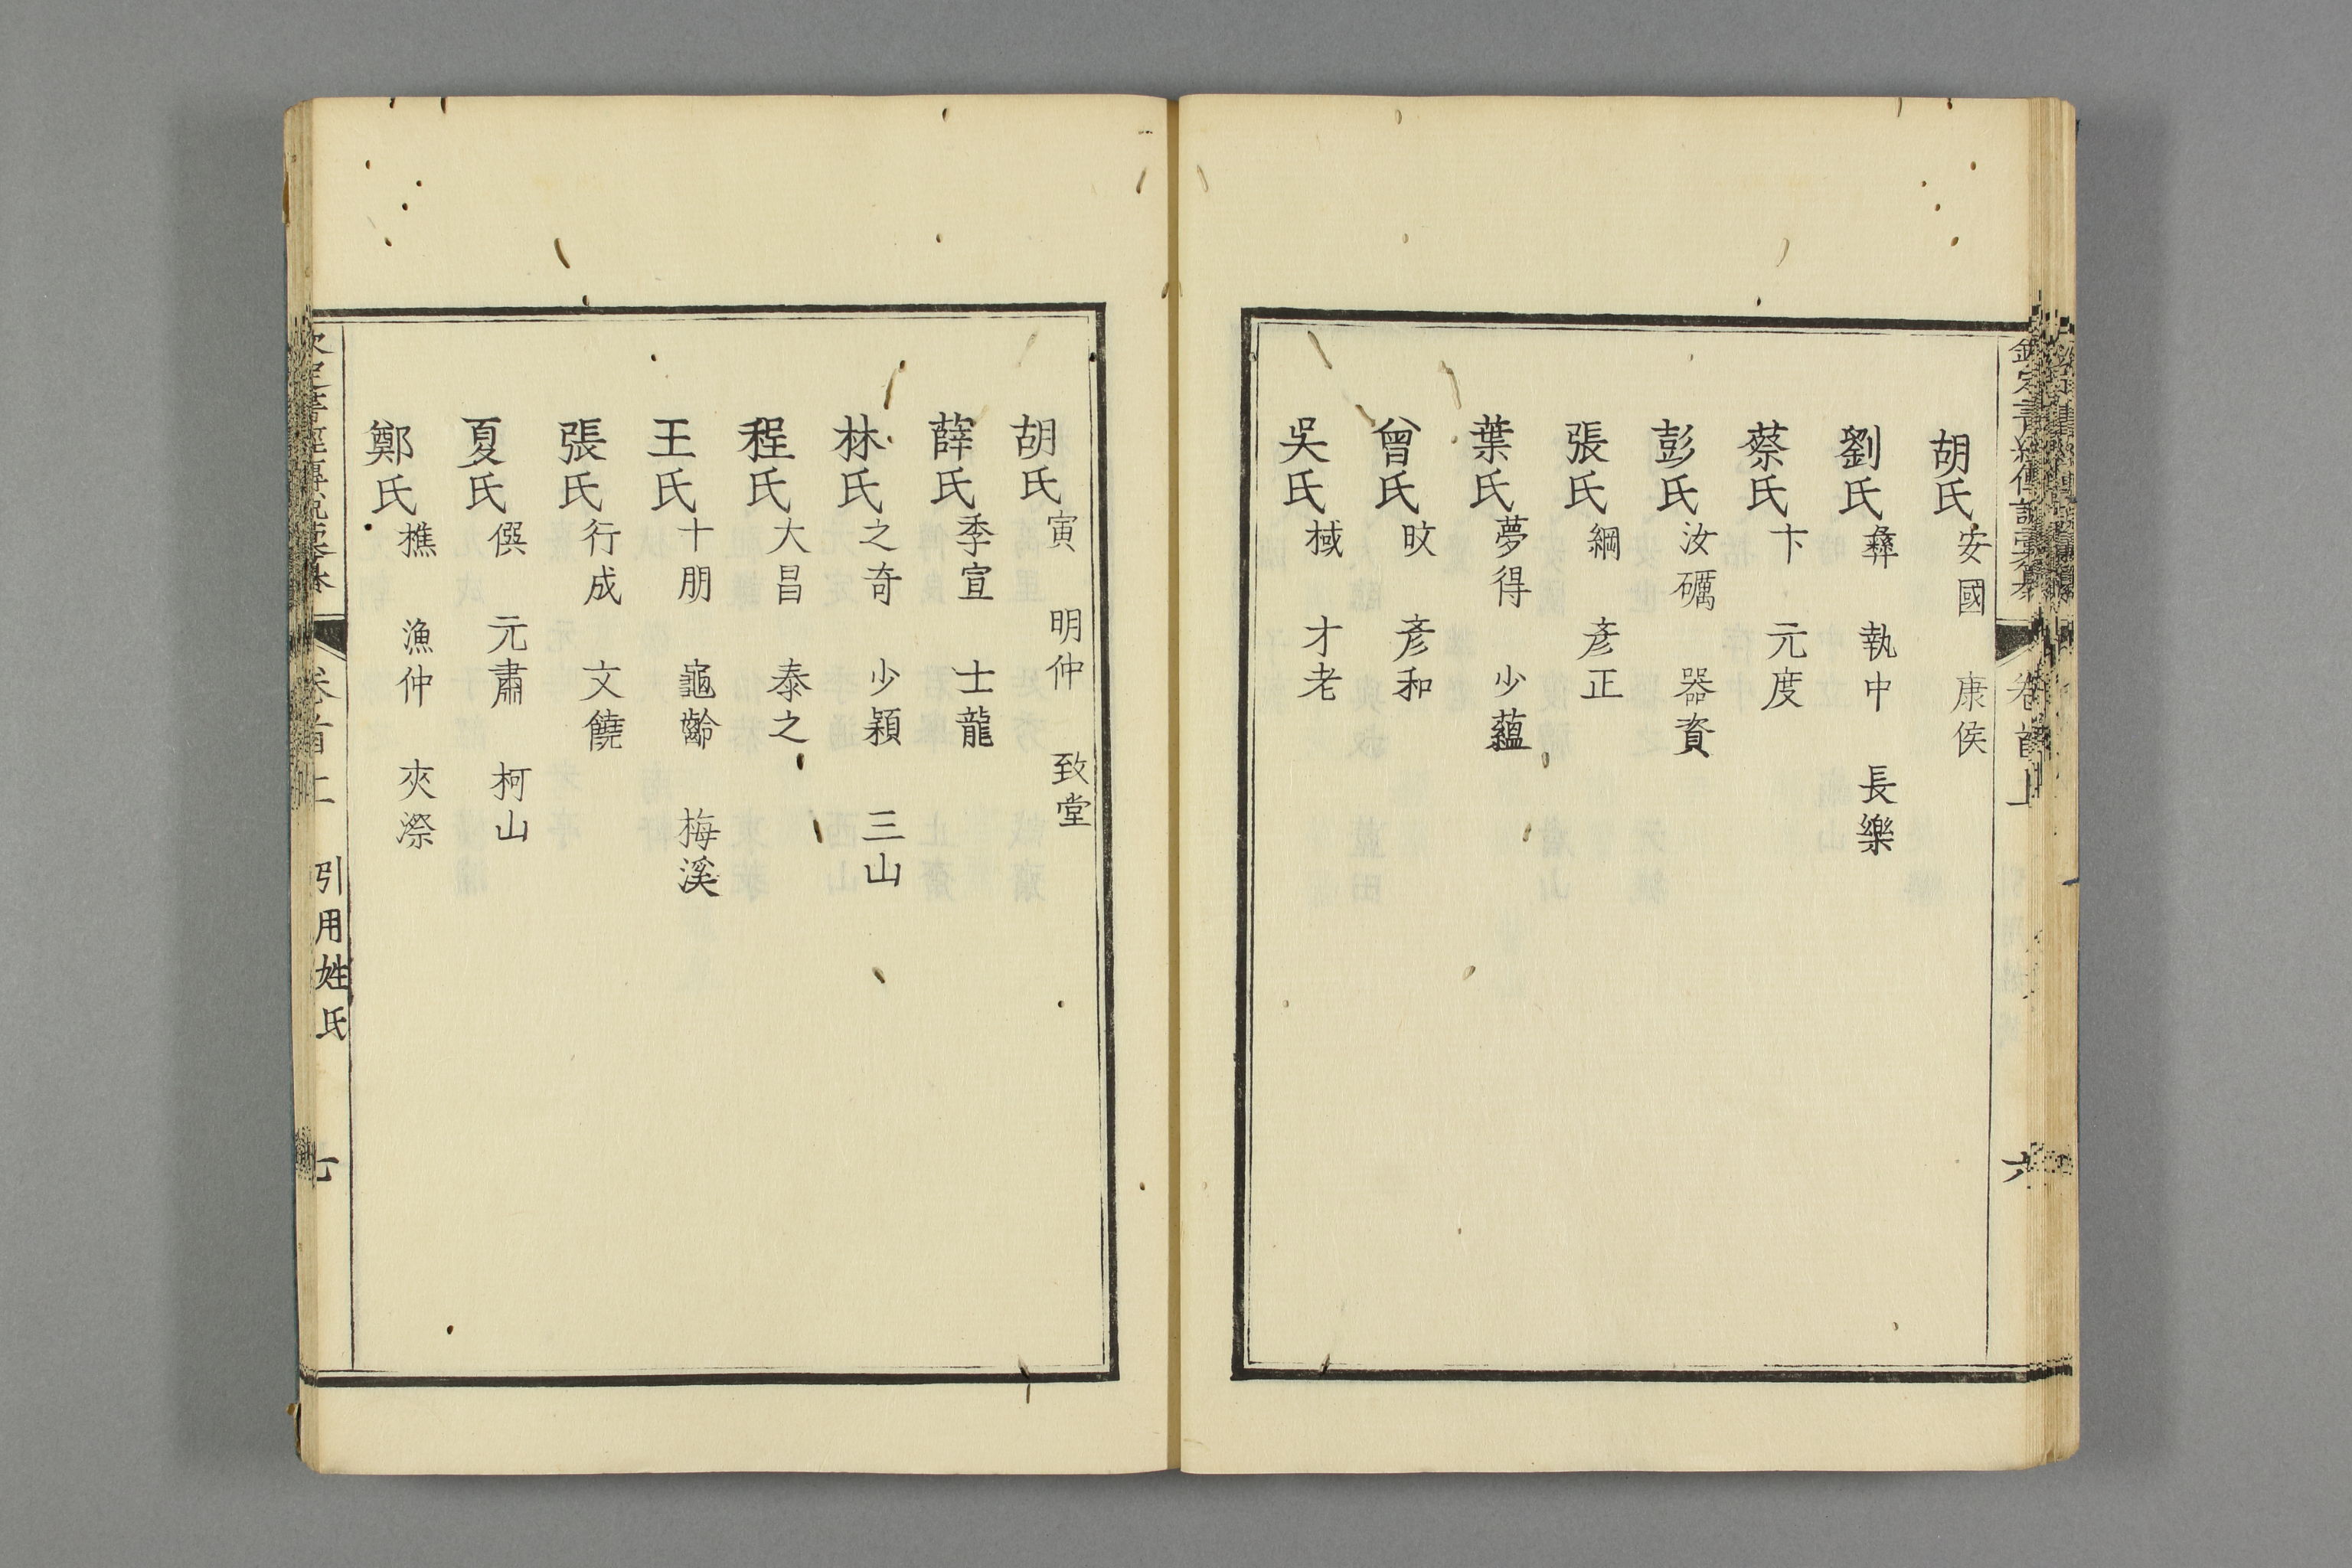 胡氏 安國 康侯
劉氏 彝 執中 長樂
蔡氏 卞 元度
彭氏 汝礪 器資
張氏 綱 彥正
葉氏 夢得 少蘊
曾氏 旼 彥和
吳氏 棫 才老
胡氏 寅 明仲 致堂
薛氏 季宣 士龍
林氏 之奇 少穎 三山
程氏 大昌 泰之
王氏 十朋 龜齡 梅溪
張氏 行成 文饒
夏氏 僎 元肅 柯山
鄭氏 樵 漁仲 夾漈
卷首上 引用姓氏 七